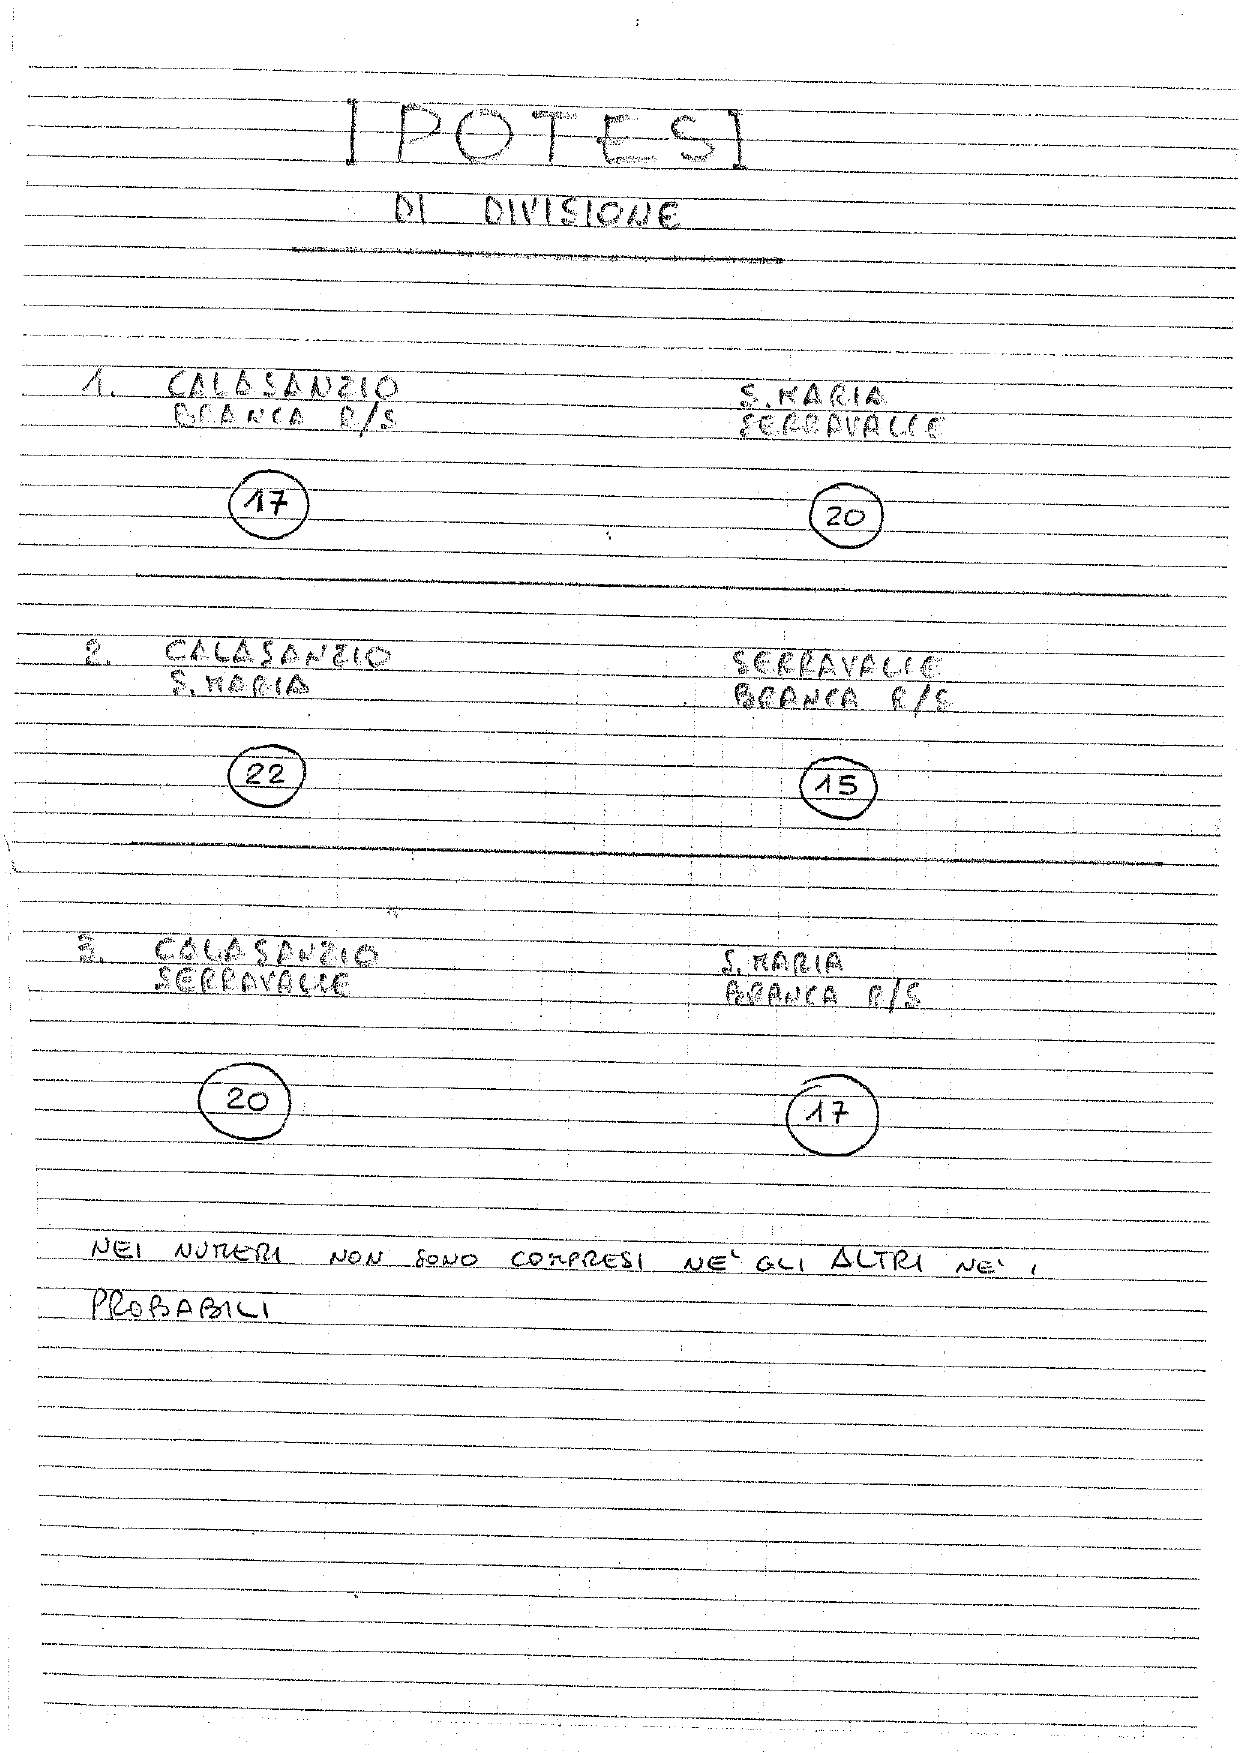 IPOTESI
DI DIVISIONE
1. CALASANZIO
BRANCA R/S
S. MARIA
SERRAVALLE
17
20
2. CALASANZIO
S. MARIA
SERRAVALLE
BRANCA R/S
22
15
3. CALASANZIO
SERRAVALLE
S. MARIA
BRANCA R/S
20
17
NEI NUMERI NON SONO COMPRESI NE' GLI ALTRI NE' I
PROBABILI